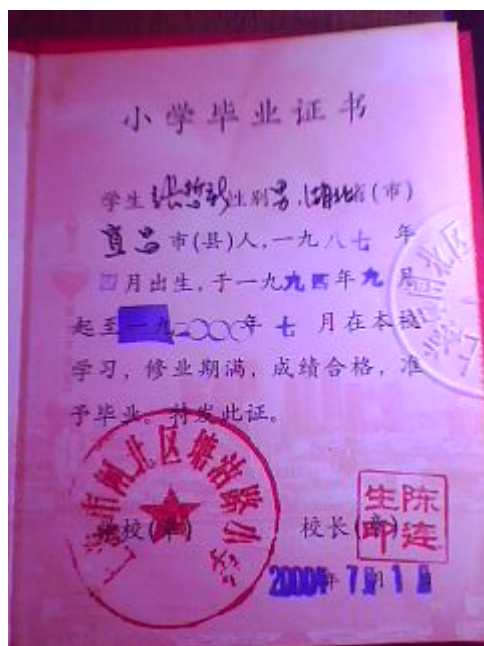 小学毕业证书
学生张哲新性别男,湖北省(市)
宜昌市(县)人,一九八七年
四月出生,于一九九四年九月
起至一九二〇〇〇年七月在本校
学习,修业期满,成绩合格,准
予毕业。特发此证。
上海市闸北区塘沽路小学
学校(章) 校长(章)
陈连生印
2000年7月1日